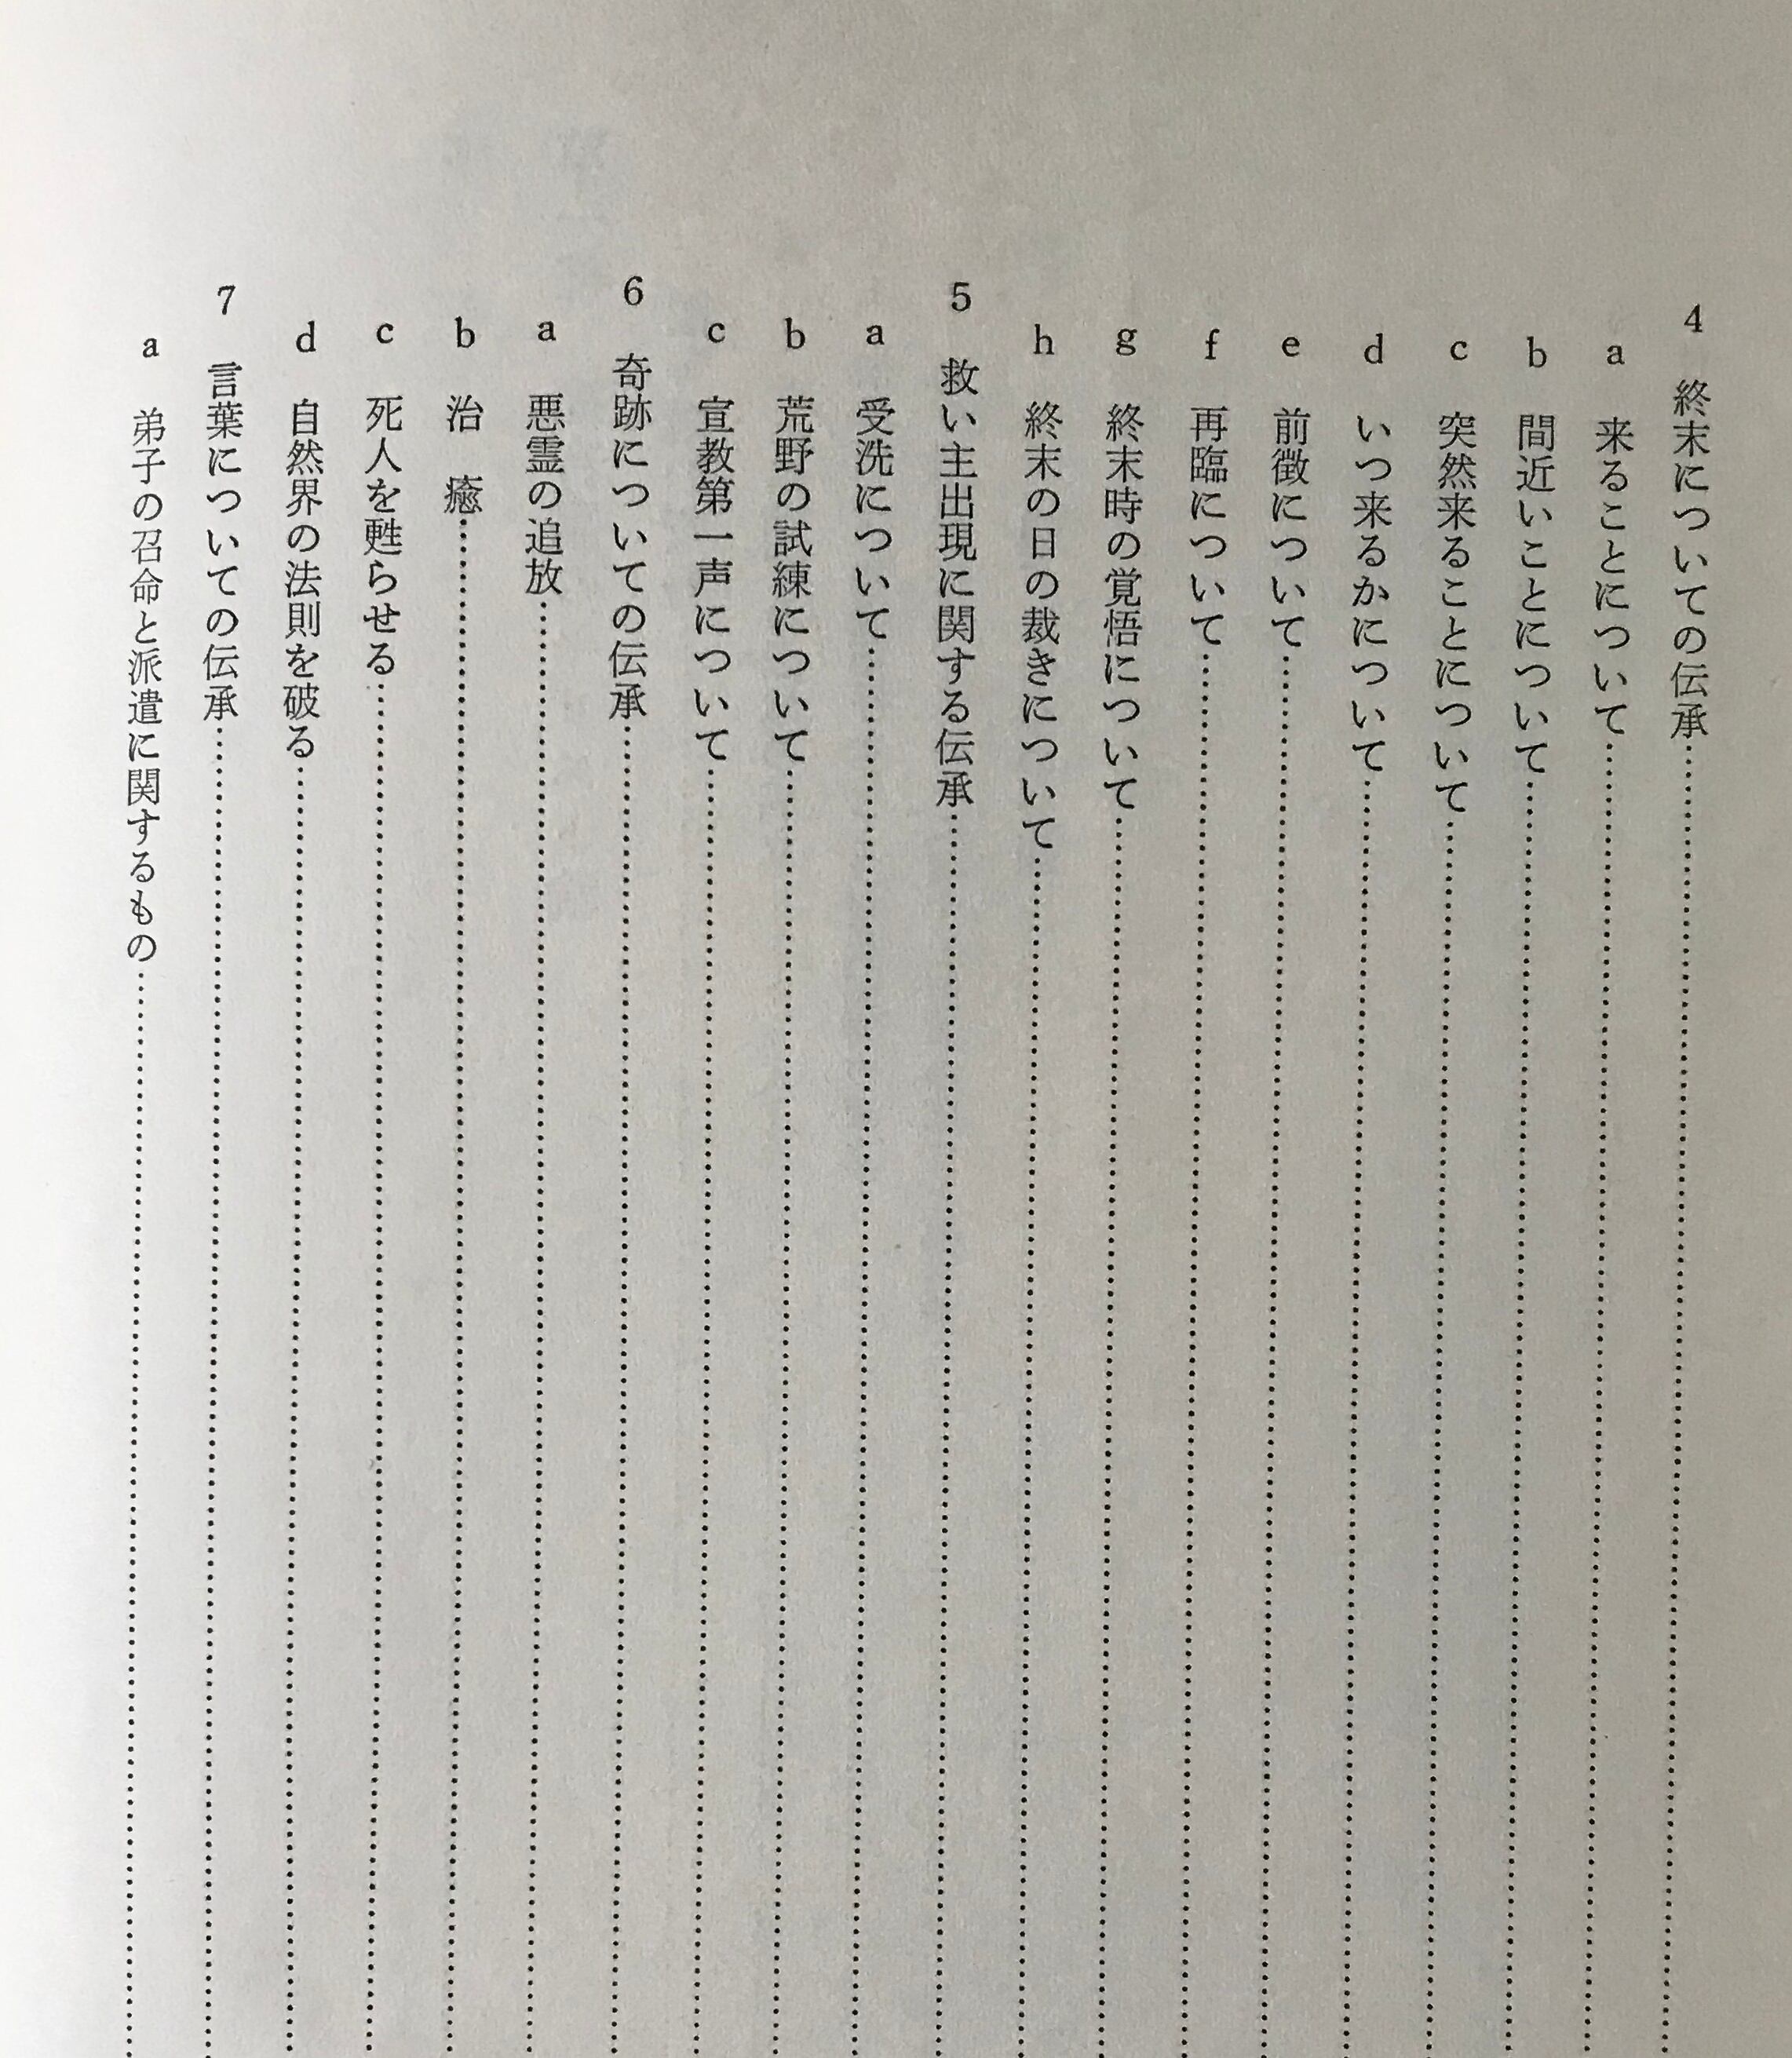 4 終末についての伝承……
a 来ることについて……
b 間近いことについて……
c 突然来ることについて……
d いつ来るかについて……
e 前徴について……
f 再臨について……
g 終末時の覚悟について……
h 終末の日の裁きについて……
5 救い主出現に関する伝承……
a 受洗について……
b 荒野の試練について……
c 宣教第一声について……
6 奇跡についての伝承……
a 悪霊の追放……
b 治 癒……
c 死人を甦らせる……
d 自然界の法則を破る……
7 言葉についての伝承……
a 弟子の召命と派遣に関するもの……